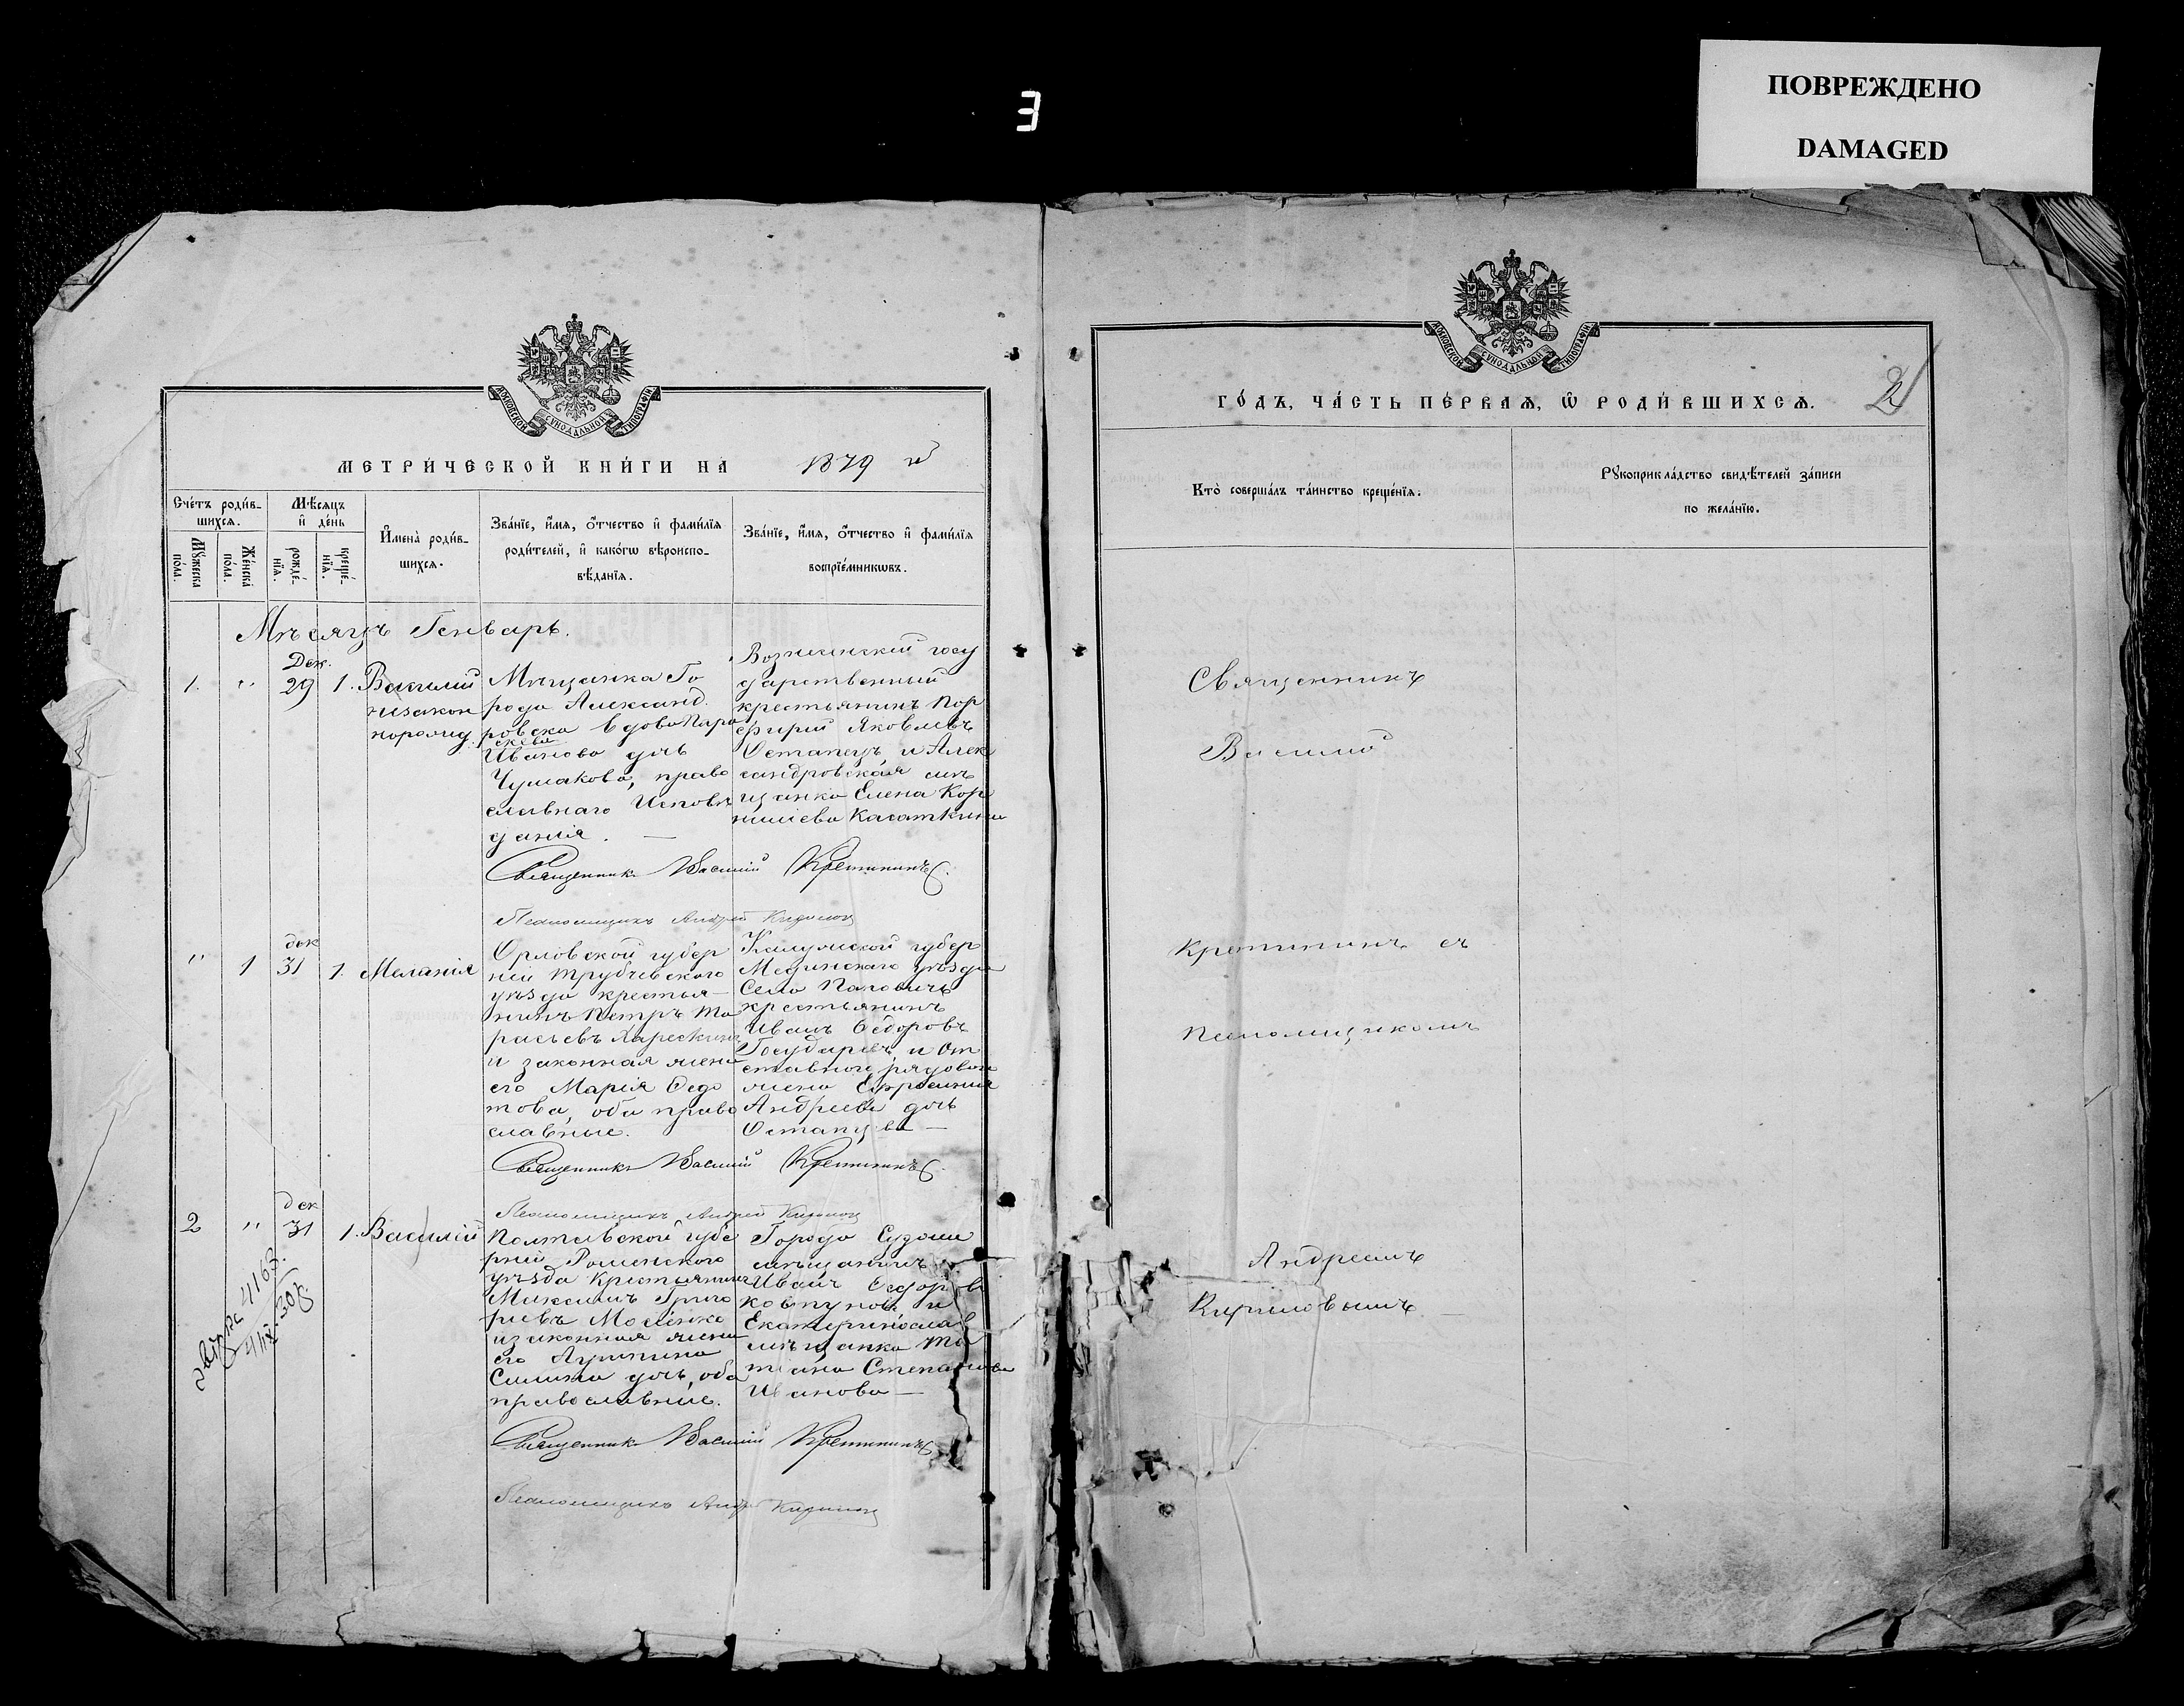 ПОВРЕЖДЕНО
DAMAGED
3
МОСКОВСКОЙ СѴНОДАЛЬНОЙ ТИПОГРАФІИ
МЕТРИ́ЧЕСКОЙ КНИ́ГИ НА 1879 й
Сче́тъ роди́в-
шихсѧ.
Мꙋ́жеска
по́ла.
Же́нска
по́ла.
Мѣ́сѧцъ
и҆ де́нь
рожде́-
нїѧ.
креще́-
нїѧ.
И҆мена̀ роди́в-
шихсѧ.
Зва́нїе, и҆́мѧ, ѻ҆́тчество и҆ фами́лїѧ
роди́телей, и҆ како́гѡ вѣроиспо-
вѣ́данїѧ.
Зва́нїе, и҆́мѧ, ѻ҆́тчество и҆ фами́лїѧ
воспрїе́мникѡвъ.
Мѣсяцъ Генварь.
Дек.
1. " 29 1. Василій
незакон
норожд.
Мѣщанка Го
рода Александ.
ровска вдова Пара
скева
Иванова дочь
Чумакова, право
славнаго Исповѣ
данія. —
госу
дарственный
крестьянинъ Пор
фирій Яковлевъ
Остапецъ и Алек
сандровская мѣ
щанка Елена Кор
нилиева Касаткина
Священникъ Василій Кретининъ.
Псаломщикъ Андрей Кириловъ
дек
" 1 31 1. Меланія
Орловской губер
ніи Трубчевского
уѣзда крестья-
нинъ Петръ Та
расьевъ
и законная жена
его Марія Федо
това, оба право
славные.
Калужской губер
Медынскаго уѣзда
Села
крестьянинъ
Иванъ Федоровъ
Государевъ, и От
ставного рядового
жена Ефросинія
Андреева дочь
Остапцева —
Священникъ Василій Кретининъ.
Псаломщикъ Андрей Кириловъ
дек
2 " 31 1. Василій
Полтавской губе
рніи Роменского
уѣзда Крестьянинъ
Максимъ Григо
рьевъ
и законная жена
его
дочь, оба
православные.
Города
мѣщанинъ
Иванъ Федоровъ
и
Екатеринослав
мѣщанка Та
тіана Степанова
Иванова —
Священникъ Василій Кретининъ
Псаломщикъ Андрей Кириловъ
МОСКОВСКОЙ СѴНОДАЛЬНОЙ ТИПОГРАФІИ
ГО́ДЪ, ЧА́СТЬ ПЕ́РВАѦ, Ѡ҆ РОДИ́ВШИХСѦ.
2
Кто̀ соверша́лъ та́инство креще́нїѧ.
Рꙋкоприкла́дство свидѣ́телей за́писи
по жела́нїю.
Священникъ
Василій
Кретининъ съ
Псаломщикомъ
Андреемъ
Кириловымъ